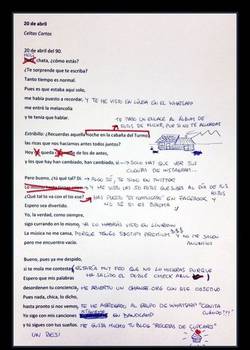 20 de abril
Celtas Cortos
20 de abril del 90.
chata, ¿cómo estás?
¿Te sorprende que te escriba?
Tanto tiempo es normal.
Pues es que estaba aquí solo,
me había puesto a recordar, Y TE HE VISTO EN LÍNEA EN EL WHATSAPP
me entró la melancolía
y te tenía que hablar.
TE PASO UN ENLACE AL ÁLBUM DE
FOTOS DE FLICKR, POR SI NO TE ACUERDAS
Estribillo: ¿Recuerdas aquella noche en la cabaña del Turmo
las risas que nos hacíamos antes todos juntos?
Hoy no queda de los de antes,
y los que hay han cambiado, han cambiado, sí. SOLO HAY QUE VER SUS
CUENTAS DE INSTAGRAM...
Pero bueno, ¿tú qué tal? Di ALGO SÉ, TE SIGO EN TWITTER
Y HE VISTO LAS FOTOS QUE SUBES AL DÍA DE SUS
¿Qué tal te va con el tío ese? HAS PUESTO "ES COMPLICADO" EN FACEBOOK Y
Espero sea divertido. NO SÉ SI ES BROMA
Yo, la verdad, como siempre,
sigo currando en lo mismo, LO HABRÁS VISTO EN LINKEDIN
La música no me cansa, PORQUE TENGO SPOTIFY PREMIUM Y NO ME SALEN
pero me encuentro vacío. ANUNCIOS
Bueno, pues ya me despido,
si te mola me contestas, ESTARÍA MUY FEO QUE NO LO HICIERAS PORQUE
HA SALIDO EL DOBLE CHECK AZUL
Espero que mis palabras
desordenen tu conciencia, HE ABIERTO UN CHANGE.ORG CON ESE OBJETIVO
Pues nada, chica, lo dicho,
hasta pronto si nos vemos, TE HE AGREGADO AL GRUPO DE WHATSAPP "CENITA
CUÁNDO???"
Yo sigo con mis canciones EN BANDCAMP
y tú sigues con tus sueños. ME GUSTA MUCHO TU BLOG "RECETAS DE CUPCAKES"
UN BESI